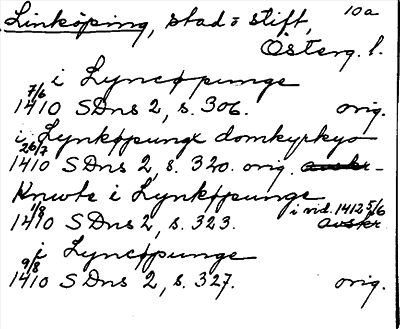 Linköping, stad o stift, 10a
Österg. l.
i Lyncøpunge
7/6 1410 SDns 2, s. 306. orig.
i Lynkøpungx domkyrkyo
26/7 1410 SDns 2, s. 320. orig. avskr.
Knwte i Lynkøpunge
1/8 1410 SDns 2, s. 323. i vid. 1412 5/6 avskr
i Lyncøpunge
9/8 1410 SDns 2, s. 327. orig.